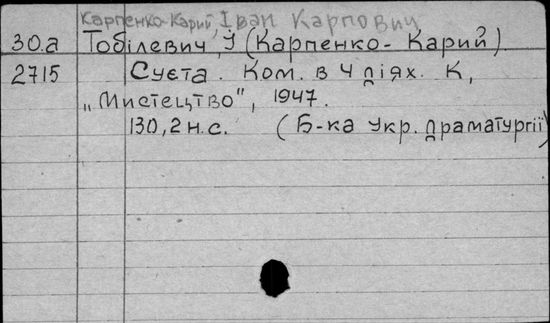 Карпенко-Карий Іван Карпович
30.а Тобілевич, Й (Карпенко-Карий).
2715 Суєта. Ком. в 4 діях. К,
„Мистецтво", 1947.
130, 2 н.с. (Б-ка Укр. драматургії)